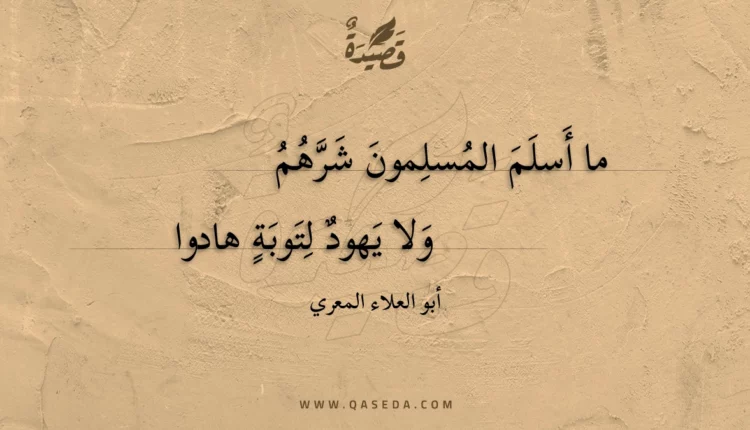 قَصِيدَةٌ
ما أَسلَمَ المُسلِمونَ شَرَّهُمُ
وَلا يَهودٌ لِتَوبَةٍ هادوا
أبو العلاء المعري
WWW.QASEDA.COM